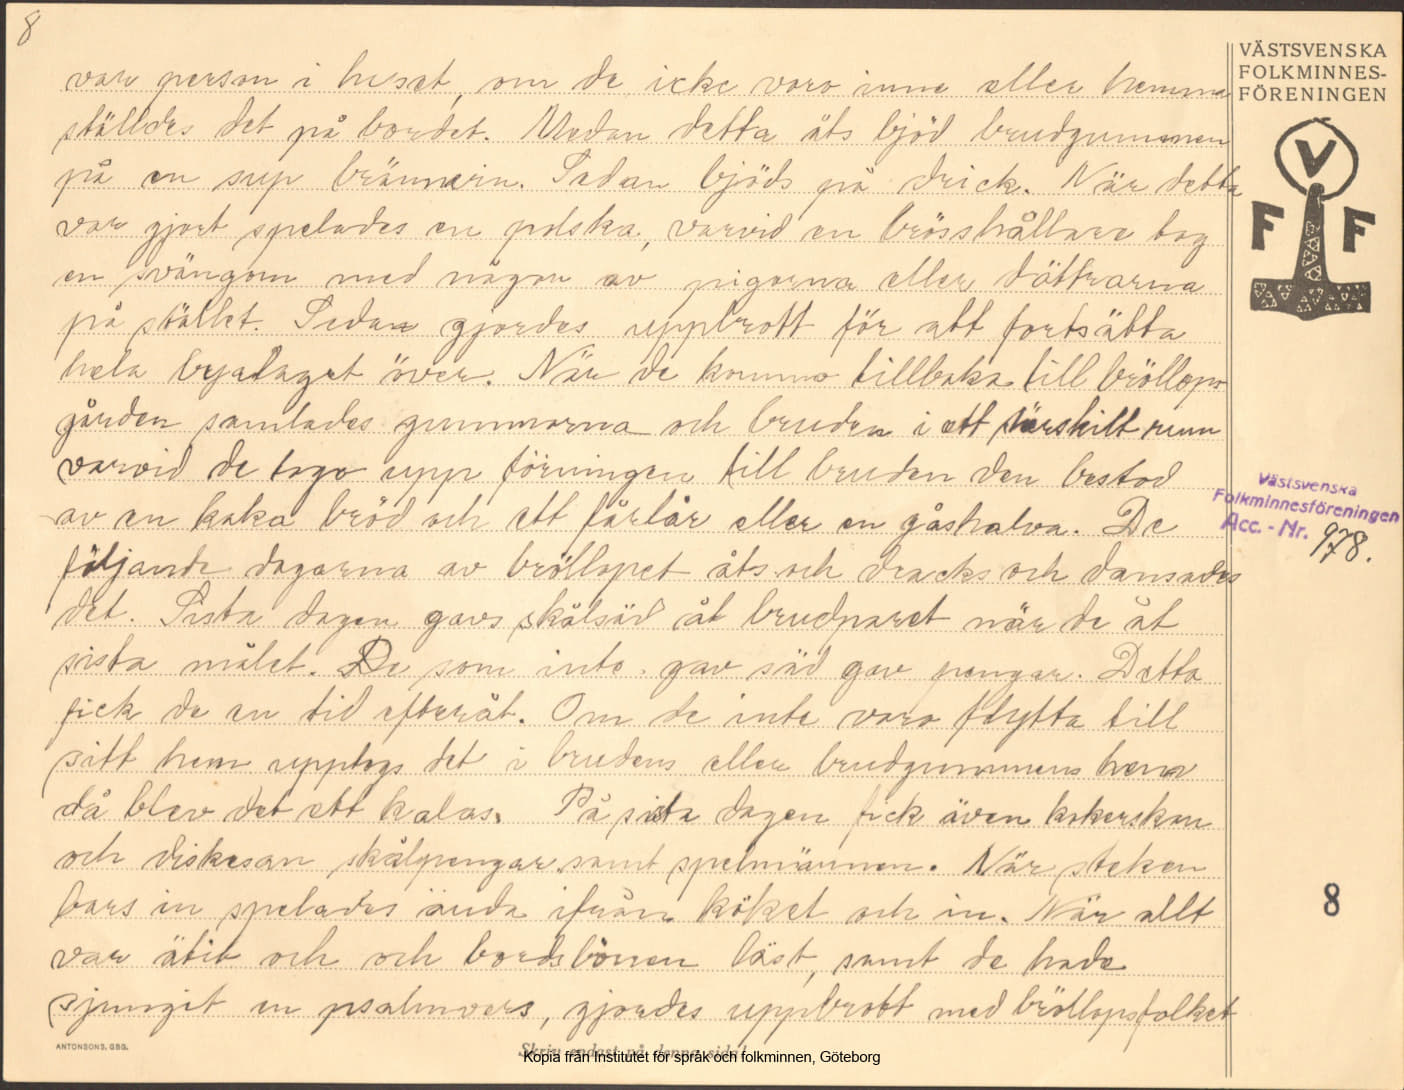 8
VÄSTSVENSKA
FOLKMINNES-
FÖRENINGEN
V
F F
var person i huset, om de icke voro inne eller hemma
ställdes det på bordet. Medan detta åts bjöd brudgummen
på en sup brännvin. Sedan bjöds på drick. När detta
var gjort spelades en polska, varvid en brösshållare tog
en svängom med någon av pigorna eller döttrarna
på stället. Sedan gjordes uppbrott för att fortsätta
hela byalaget över. När de kommo tillbaka till bröllops
gården samlades gummorna och bruden i ett särskilt rum
varvid de togo upp förningen till bruden den bestod
av en kaka bröd och ett fårlår eller en gåshalva. De
följande dagarna av bröllopet åts och dracks och dansades
det. Sista dagen gavs skålsäd åt brudparet när de åt
sista målet. De som inte gav säd gav pengar. Detta
fick de en tid efteråt. Om de inte voro flytta till
sitt hem upptogs det i brudens eller brudgummens hem
då blev det ett kalas. På sista dagen fick även kokerskan
och diskesan skålpengar samt spelmännen. När steken
bars in spelades ända ifrån köket och in. När allt
var ätit och och bordsbönen läst, samt de hade
sjungit en psalmvers, gjordes uppbrott med bröllopsfolket
Västsvenska
Folkminnesföreningen
Acc. - Nr. 978.
8
ANTONSONS, GBG.
Skriv endast på denna sida!
Kopia från Institutet för språk och folkminnen, Göteborg